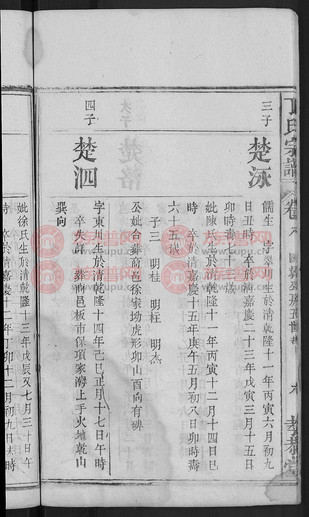 丁氏宗譜
卷八
三子
楚泳
儒生 字翠川生於清乾隆十一年丙寅六月初九
日丑時 卒於清嘉慶二十三年戊寅三月十五日
卯時壽七十三歲
妣陳氏生於清乾隆十一年丙寅十二月十四日巳
時 卒於清嘉慶十五年庚午五月初八日卯時壽
六十五歲
子三 明桂 明柱 明杰
公妣合葬前邑徐家坳虎形卯山酉向有碑
四子
楚泗
字東川生於清乾隆十四年己巳正月十七日午時
卒失詳 葬蘄邑板市保項家海上手火堆乾山
巽向
妣徐氏生於清乾隆十三年戊辰又七月三十日午
時 卒於清嘉慶十二年丁卯十二月初九日未時